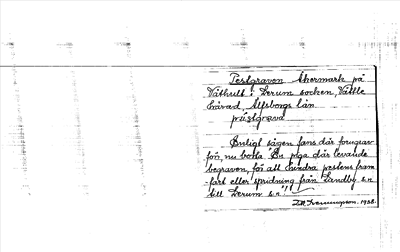 Pestgraven Åkermark på
Våthult i Lerum socken, Vättle
härad, Älfsborgs län
pästgrava
Enligt sägen fans där forngrav
för, nu borta "En piga där levande
begraven, för att hindra pestens fram
fart eller spridning från Landby s:n
till Lerum s:n"!
1938.